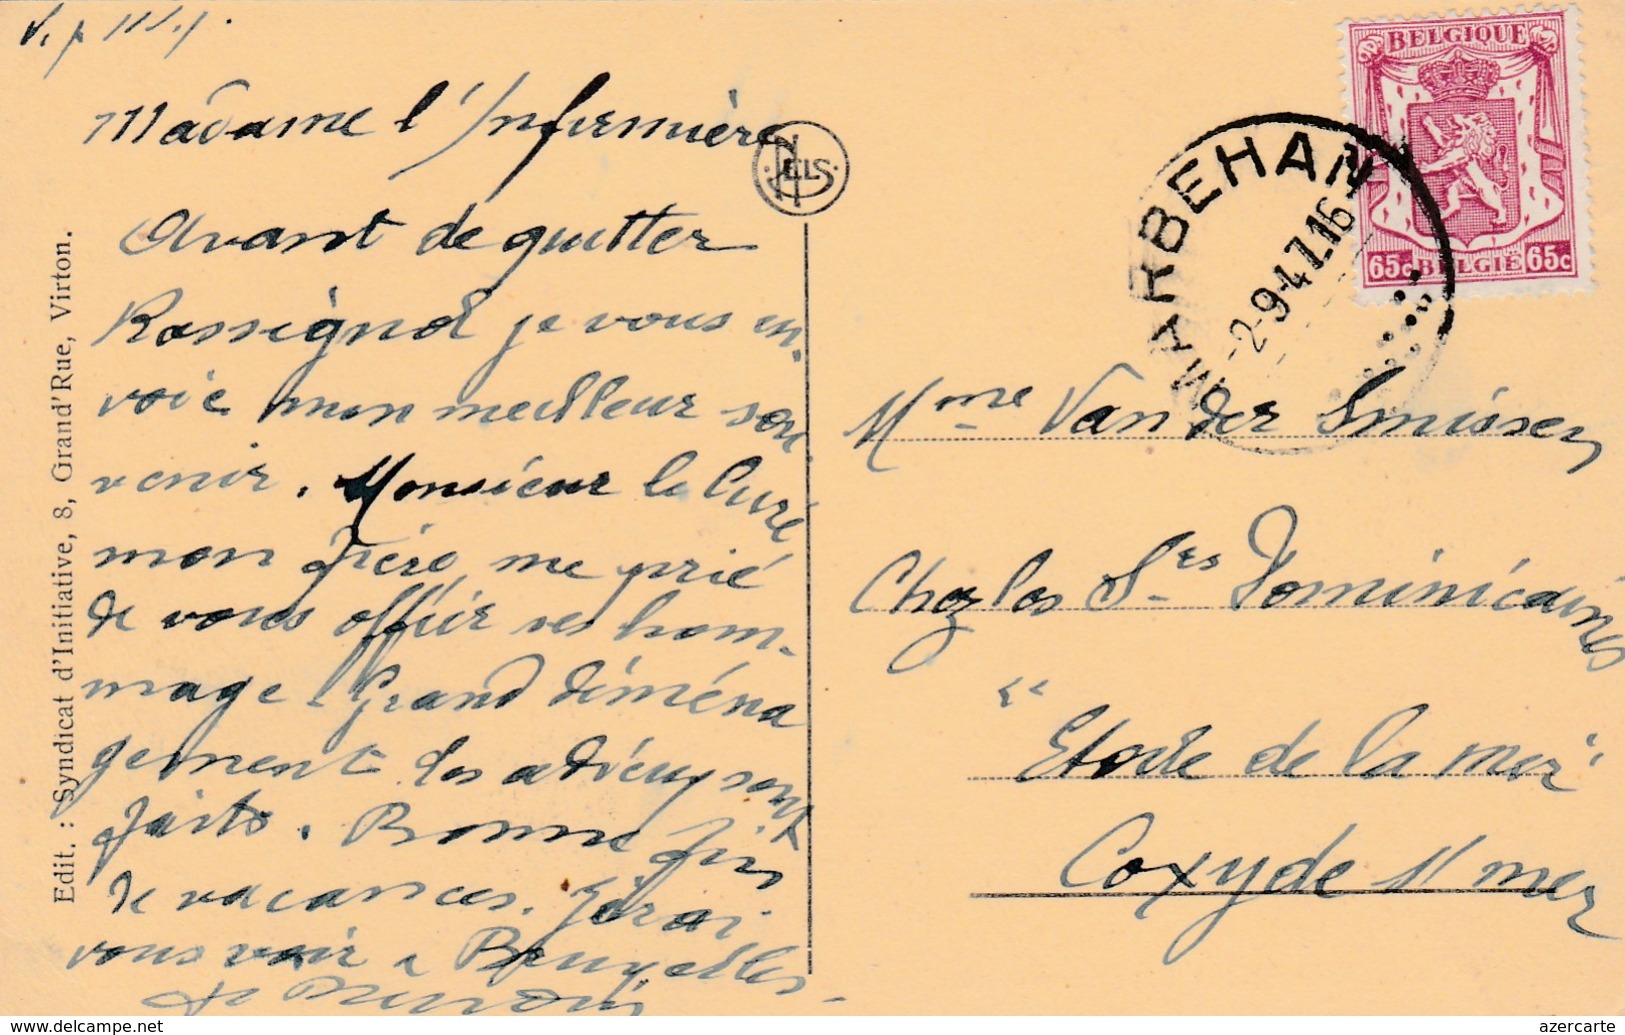 Madame l'Infirmière
Avant de quitter
Rossignol je vous en-
voie mon meilleur sou
venir. Monsieur le Curé
mon frère me prie
de vous offrir ses hom-
mage. Grand déména
gement les adieux sont
faits. Bonne fin
de vacances. J'irai
vous voir à Bruxelles
NELS
Edit. : Syndicat d'Initiative, 8, Grand'Rue, Virton.
BELGIQUE
65c BELGIE 65c
MARBEHAN
-2-9-47.16
Mme Van der Smissen
Chez les Srs Dominicaines
"Etoile de la mer"
Coxyde s/ mer
www.delcampe.net
azercarte